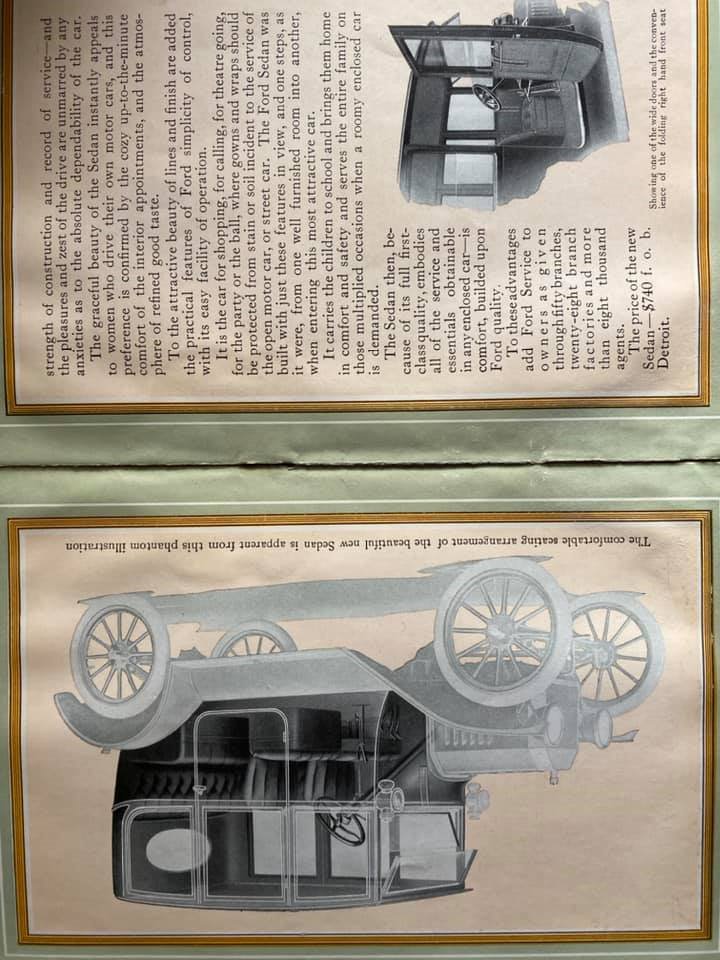 The comfortable seating arrangement of the beautiful new Sedan is apparent from this phantom illustration
strength of construction and record of service—and
the pleasures and zest of the drive are unmarred by any
anxieties as to the absolute dependability of the car.
The graceful beauty of the Sedan instantly appeals
to women who drive their own motor cars, and this
preference is confirmed by the cozy up-to-the-minute
comfort of the interior appointments, and the atmos-
phere of refined good taste.
To the attractive beauty of lines and finish are added
the practical features of Ford simplicity of control,
with its easy facility of operation.
It is the car for shopping, for calling, for theatre going,
for the party or the ball, where gowns and wraps should
be protected from stain or soil incident to the service of
the open motor car, or street car. The Ford Sedan was
built with just these features in view, and one steps, as
it were, from one well furnished room into another,
when entering this most attractive car.
It carries the children to school and brings them home
in comfort and safety and serves the entire family on
those multiplied occasions when a roomy enclosed car
is demanded.
The Sedan then, be-
cause of its full first-
class quality, embodies
all of the service and
essentials obtainable
in any enclosed car—is
comfort, builded upon
Ford quality.
To these advantages
add Ford Service to
owners as given
through fifty branches,
twenty-eight branch
factories and more
than eight thousand
agents.
The price of the new
Sedan—$740 f. o. b.
Detroit.
Showing one of the wide doors and the conven-
ience of the folding right hand front seat